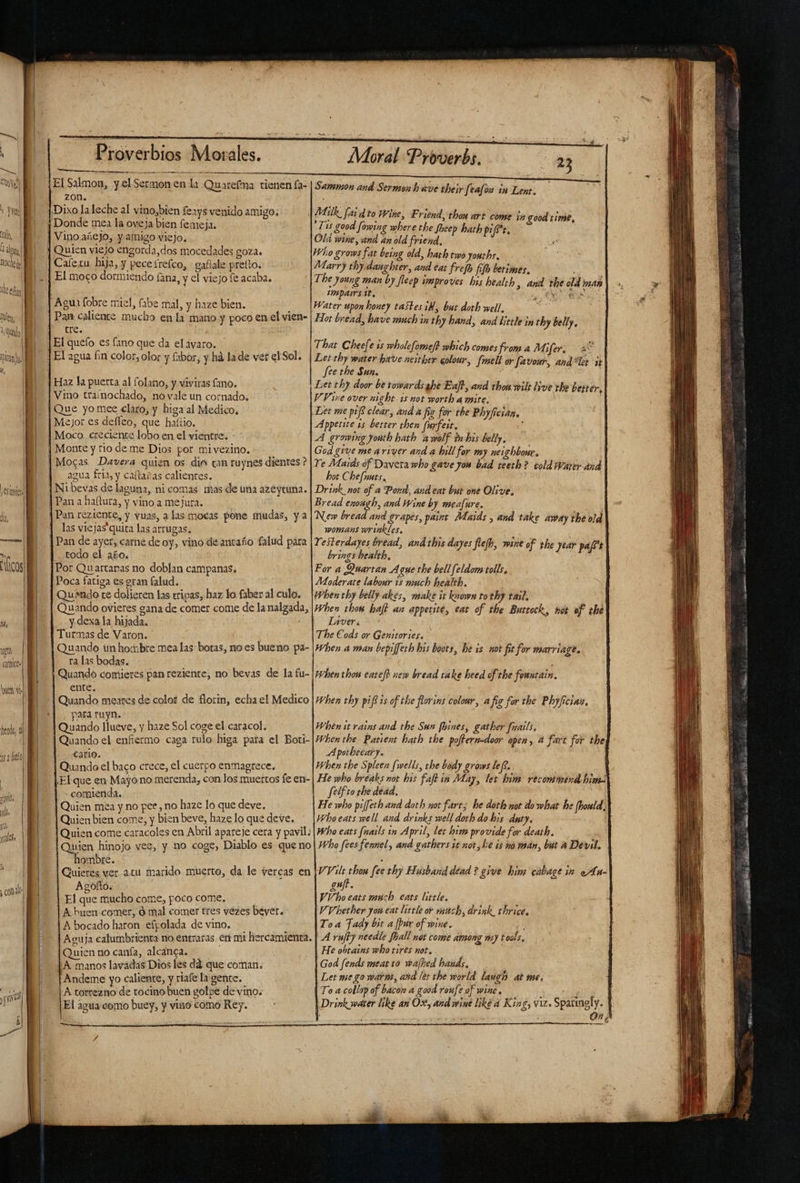 Proverbios Morales.
El Salmon, y el Sermon en la Quaresma tienen sa-
zon.
Dixo la leche al vino, bien seays venido amigo.
Donde mea la oveja bien semeja.
Vino añejo, y amigo viejo.
Quien viejo engorda, dos mocedades goza.
Case tu hija, y pece fresco, gastale presto.
El moço dormiendo sana, y el viejo se acaba.
Agua sobre miel, sabe mal, y haze bien.
Pan caliente mucho en la mano y poco en el vien-
tre.
El queso es sano que da el avaro.
El agua sin color, olor y sabor, y há la de ver el Sol.
Haz la puerta al solano, y viviras sano.
Vino trasnochado, no vale un cornado.
Que yo mee claro, y higa al Medico.
Mejor es desseo, que hastio.
Moco creciente lobo en el vientre.
Monte y rio de me Dios por mi vezino.
Moças Davera quien os dio tan ruynes dientes?
agua fria, y castañas calientes.
Ni bevas de laguna, ni comas mas de una azeytuna.
Pan a hastura, y vino a mejura.
Pan reziente, y vuas, a las mocas pone mudas, y a
las viejas quita las arrugas.
Pan de ayer, carne de oy, vino de antaño salud para
todo el año.
Por Quartanas no doblan campanas.
Poca fatiga es gran salud.
Quando te dolieren las tripas, haz lo saber al culo.
Quando ovieres gana de comer come de la nalgada,
y dexa la hijada.
Turmas de Varon.
Quando un hombre mea las botas, no es bueno pa-
ra las bodas.
Quando comieres pan reziente, no bevas de la fu-
ente.
Quando meares de color de florin, echa el Medico
para ruyn.
Quando llueve, y haze Sol coge el caracol.
Quando el enfiermo caga rulo higa para el Boti-
cario.
Quando el baço crece, el cuerpo enmagrece.
El que en Mayo no merenda, con los muertos se en-
comienda.
Quien mea y no pee, no haze lo que deve.
Quien bien come, y bien beve, haze lo que deve.
Quien come caracoles en Abril apareje cera y pavil.
Quien hinojo vee, y no coge, Diablo es que no
hombre.
Quieres ver a tu marido muerto, da le verças en
Agosto.
El que mucho come, poco come.
A buen comer, ó mal comer tres vezes bever.
A bocado haron espolada de vino.
Aguja calumbrienta no entraras en mi hercamienta.
Quien no cansa, alcança.
A manos lavadas Dios les dá que coman.
Andeme yo caliente, y riase la gente.
A torrezno de tocino buen golpe de vino.
El agua como buey, y vino como Rey.
Moral Proverbs. 23
Sammon and Sermon have their season in Lent.
Milk said to Wine, Friend, thou art come in good time.
'Tis good sowing where the sheep hath pist.
Old wine, and an old friend.
Who grows fat being old, hath two youths.
Marry thy daughter, and eat fresh fish betimes.
The young man by sleep improves his health, and the old man
impairs it.
Water upon honey tastes ill, but doth well.
Hot bread, have much in thy hand, and little in thy belly.
That Cheese is wholesomest which comes from a Miser.
Let thy water have neither colour, smell or savour, and let it
see the Sun.
Let thy door be towards the East, and thou wilt live the better.
VVine over night is not worth a mite.
Let me piss clear, and a fig for the Physician.
Appetite is better then surfeit.
A growing youth hath a wolf in his belly.
God give me a river and a hill for my neighbour.
Ye Maids of Davera who gave you bad teeth? cold Water and
hot Chesnuts.
Drink not of a Pond, and eat but one Olive.
Bread enough, and Wine by measure.
New bread and grapes, paint Maids, and take away the old
womans wrinkles.
Yesterdayes bread, and this dayes flesh, wine of the year past
brings health.
For a Quartan Ague the bell seldom tolls.
Moderate labour is much health.
When thy belly akes, make it known to thy tail.
When thou hast an appetite, eat of the Buttock, not of the
Liver.
The Cods or Genitories.
When a man bepisseth his boots, he is not fit for marriage.
When thou eatest new bread take heed of the fountain.
When thy piss is of the florins colour, a fig for the Physician.
When it rains and the Sun shines, gather snails.
When the Patient hath the postern-door open, a fart for the
Apothecary.
When the Spleen swells, the body grows less.
He who breaks not his fast in May, let him recommend him-
self to the dead.
He who pisseth and doth not fart; he doth not do what he should.
Who eats well and drinks well doth do his duty.
Who eats snails in April, let him provide for death.
Who sees fennel, and gathers it not, he is no man, but a Devil.
VVilt thou see thy Husband dead? give him cabage in Au-
gust.
VVho eats much eats little.
VVhether you eat little or much, drink thrice.
To a Jady bit a spur of wine.
A rusty needle shall not come among my tools.
He obtains who tires not.
God sends meat to washed hands.
Let me go warm, and let the world laugh at me.
To a collop of bacon a good rouse of wine.
Drink water like an Ox, and wine like a King, viz. Sparingly.
On